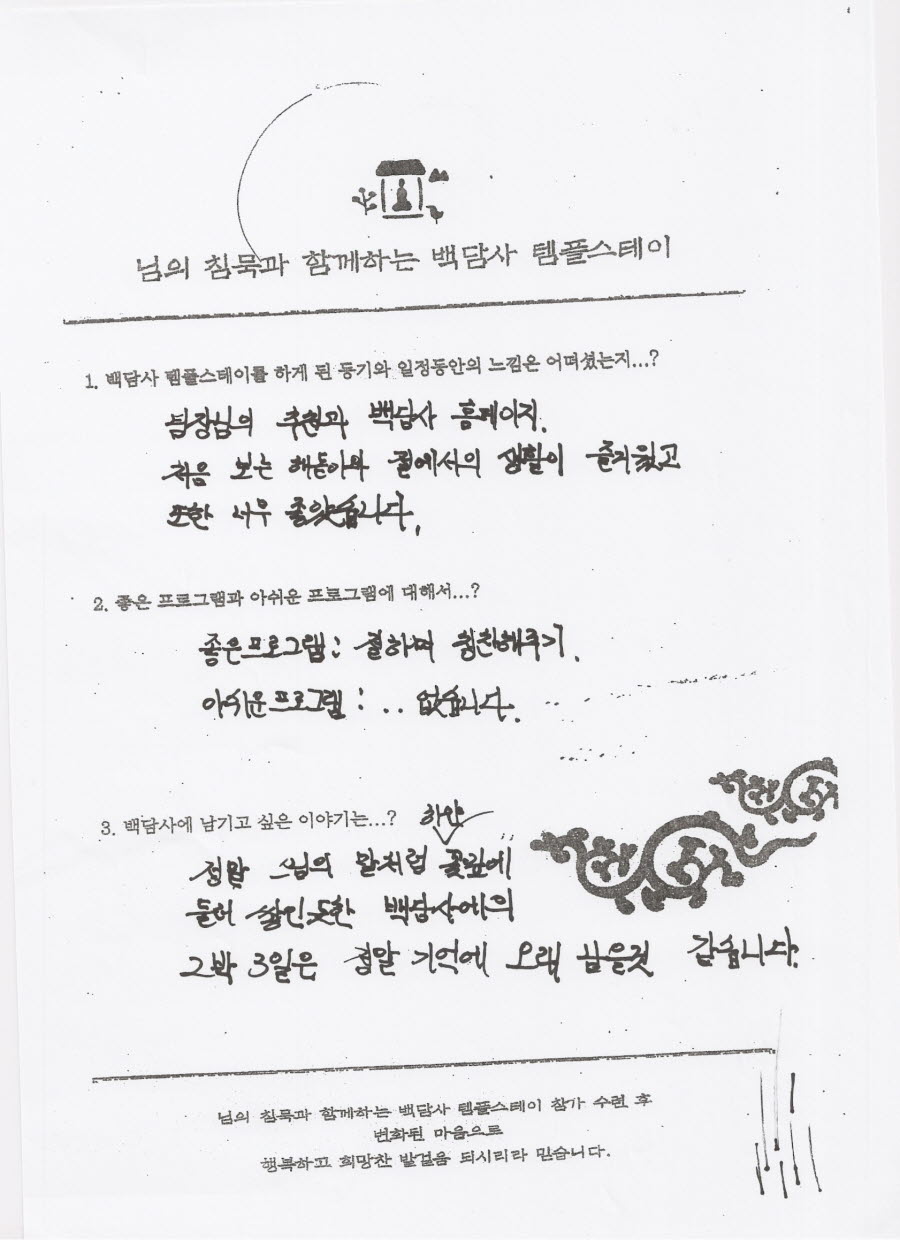 님의 침묵과 함께하는 백담사 템플스테이
1. 백담사 템플스테이를 하게 된 동기와 일정동안의 느낌은 어떠셨는지...?
팀장님의 추천과 백담사 홈페이지.
처음 보는 해돋이와 절에서의 생활이 즐거웠고
또한 너무 좋았습니다.
2. 좋은 프로그램과 아쉬운 프로그램에 대해서...?
좋은프로그램 : 절하며 칭찬해주기.
아쉬운프로그램 : .. 없습니다.
3. 백담사에 남기고 싶은 이야기는...?
하얀
정말 스님의 말처럼 꽃잎에
둘러 쌓인듯한 백담사에의
2박 3일은 정말 기억에 오래 남을것 같습니다.
님의 침묵과 함께하는 백담사 템플스테이 참가 수련 후
변화된 마음으로
행복하고 희망찬 발걸음 되시리라 믿습니다.